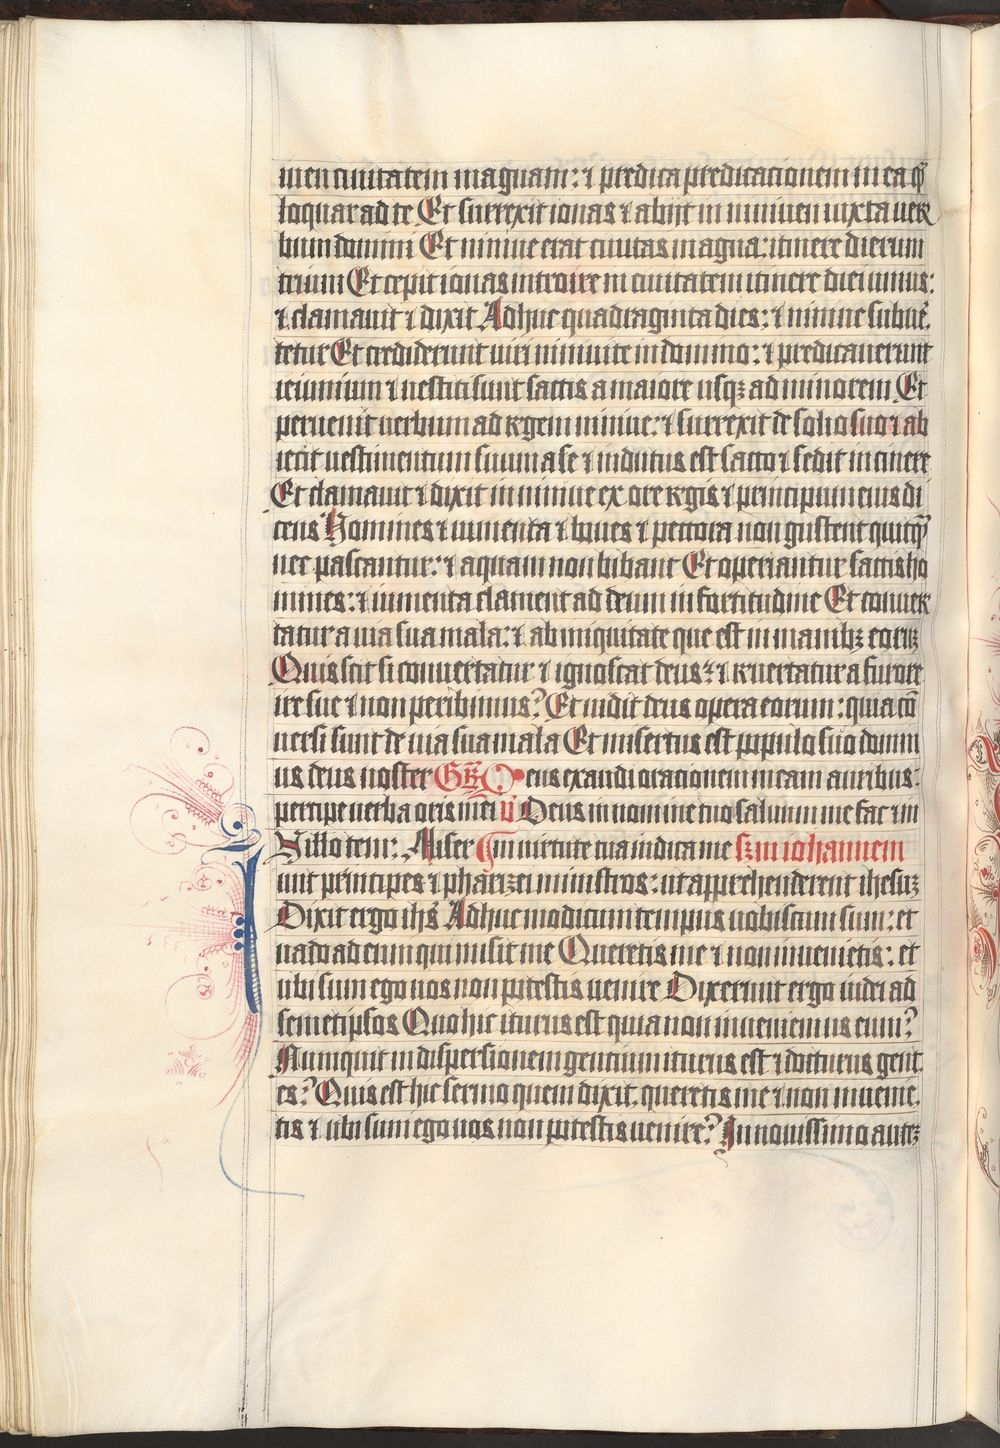 niuen ciuitatem magnam: ⁊ predica predicationem in ea qᷓ
loquar ad te Et surrexit ionas ⁊ abijt in niniuen iuxta uer
bum domini Et niniue erat ciuitas magna: itinere dierum
trium Et cepit ionas introire in ciuitatem itinere diei unius:
⁊ clamauit ⁊ dixit Adhuc quadraginta dies: ⁊ niniue subuer̄
tetur Et crediderunt uiri niniuite in domino: ⁊ predicauerunt
ieiunium ⁊ uestiti sunt saccis a maiore usqꝫ ad minorem Et
peruenit uerbum ad regem niniue: ⁊ surrexit de solio suo ⁊ ab
iecit uestimentum suum a se ⁊ indutus est sacco ⁊ sedit in cinere
Et clamauit ⁊ dixit in niniue ex ore regis ⁊ principum eius di
cens Homines ⁊ iumenta ⁊ boues ⁊ peccora non gustent quicqᷓ
nec pascantur: ⁊ aquam non bibant Et operiantur saccis ho
mines: ⁊ iumenta clament ad deum in fortitudine Et conuer
tatur a uia sua mala: ⁊ ab iniquitate que est in manibꝫ eorum
Quis scit si conuertatur ⁊ ignoscat deus: ⁊ reuertatur a furore
ire sue ⁊ non peribimus? Et uidit deus opera eorum: quia cō
uersi sunt de uia sua mala Et misertus est populo suo domin
us deus noster Gr̄ Deus exaudi orationem meam auribus:
percipe uerba oris mei v̄ Deus in nomine tuo saluum me fac ⁊ in
uirtute tua iudica me Scd̄m iohannem
In illo tem: Miser
unt principes ⁊ pharizei ministros: ut apprehenderent ihesuꝫ
Dixit ergo ihs̄ Adhuc modicum tempus uobiscum sum: et
uado ad eum qui misit me Queretis me ⁊ non inuenietis: et
ubi sum ego uos non potestis uenire Dixerunt ergo iudei ad
semetipsos Quo hic iturus est quia non inueniemus eum?
Numquit in dispersionem gentium iturus est ⁊ dicturus gent
es? Quis est hic sermo quem dixit. queretis me ⁊ non inuenie.
tis ⁊ ubi sum ego uos non potestis uenire? In nouissimo autꝫ